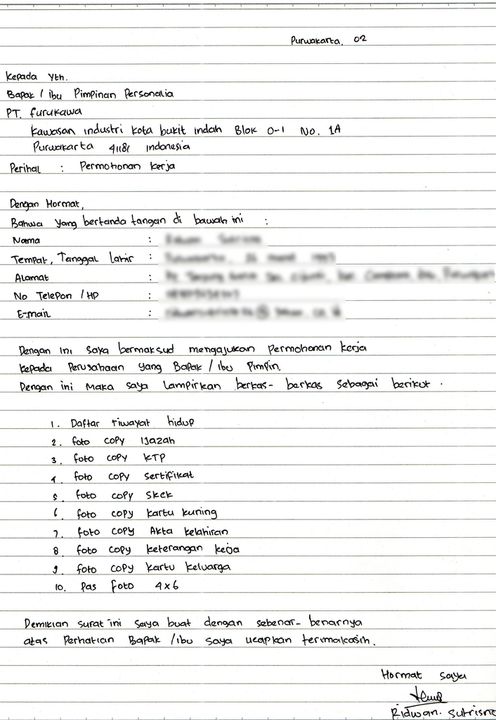 Purwakarta, 02
Kepada Yth.
Bapak / ibu Pimpinan Personalia
PT. Furukawa
Kawasan industri kota bukit indah Blok D-1 No. 1A
Purwakarta 41181 indonesia
Perihal : Permohonan kerja
Dengan Hormat,
Bahwa yang bertanda tangan di bawah ini :
Nama :
Tempat, Tanggal Lahir :
Alamat :
No Telepon / HP :
E-mail :
Dengan ini saya bermaksud mengajukan Permohonan kerja
kepada Perusahaan yang Bapak / ibu Pimpin.
Dengan ini maka saya lampirkan berkas - berkas sebagai berikut .
1. Daftar riwayat hidup
2. foto copy Ijazah
3. foto copy KTP
4. foto copy sertifikat
5. foto copy skck
6. foto copy kartu kuning
7. foto copy Akta kelahiran
8. foto copy keterangan kerja
9. foto copy kartu keluarga
10. Pas foto 4x6
Demikian surat ini saya buat dengan sebenar - benarnya
atas Perhatian Bapak / ibu saya ucapkan terimakasih.
Hormat saya
Ridwan. Sutrisno